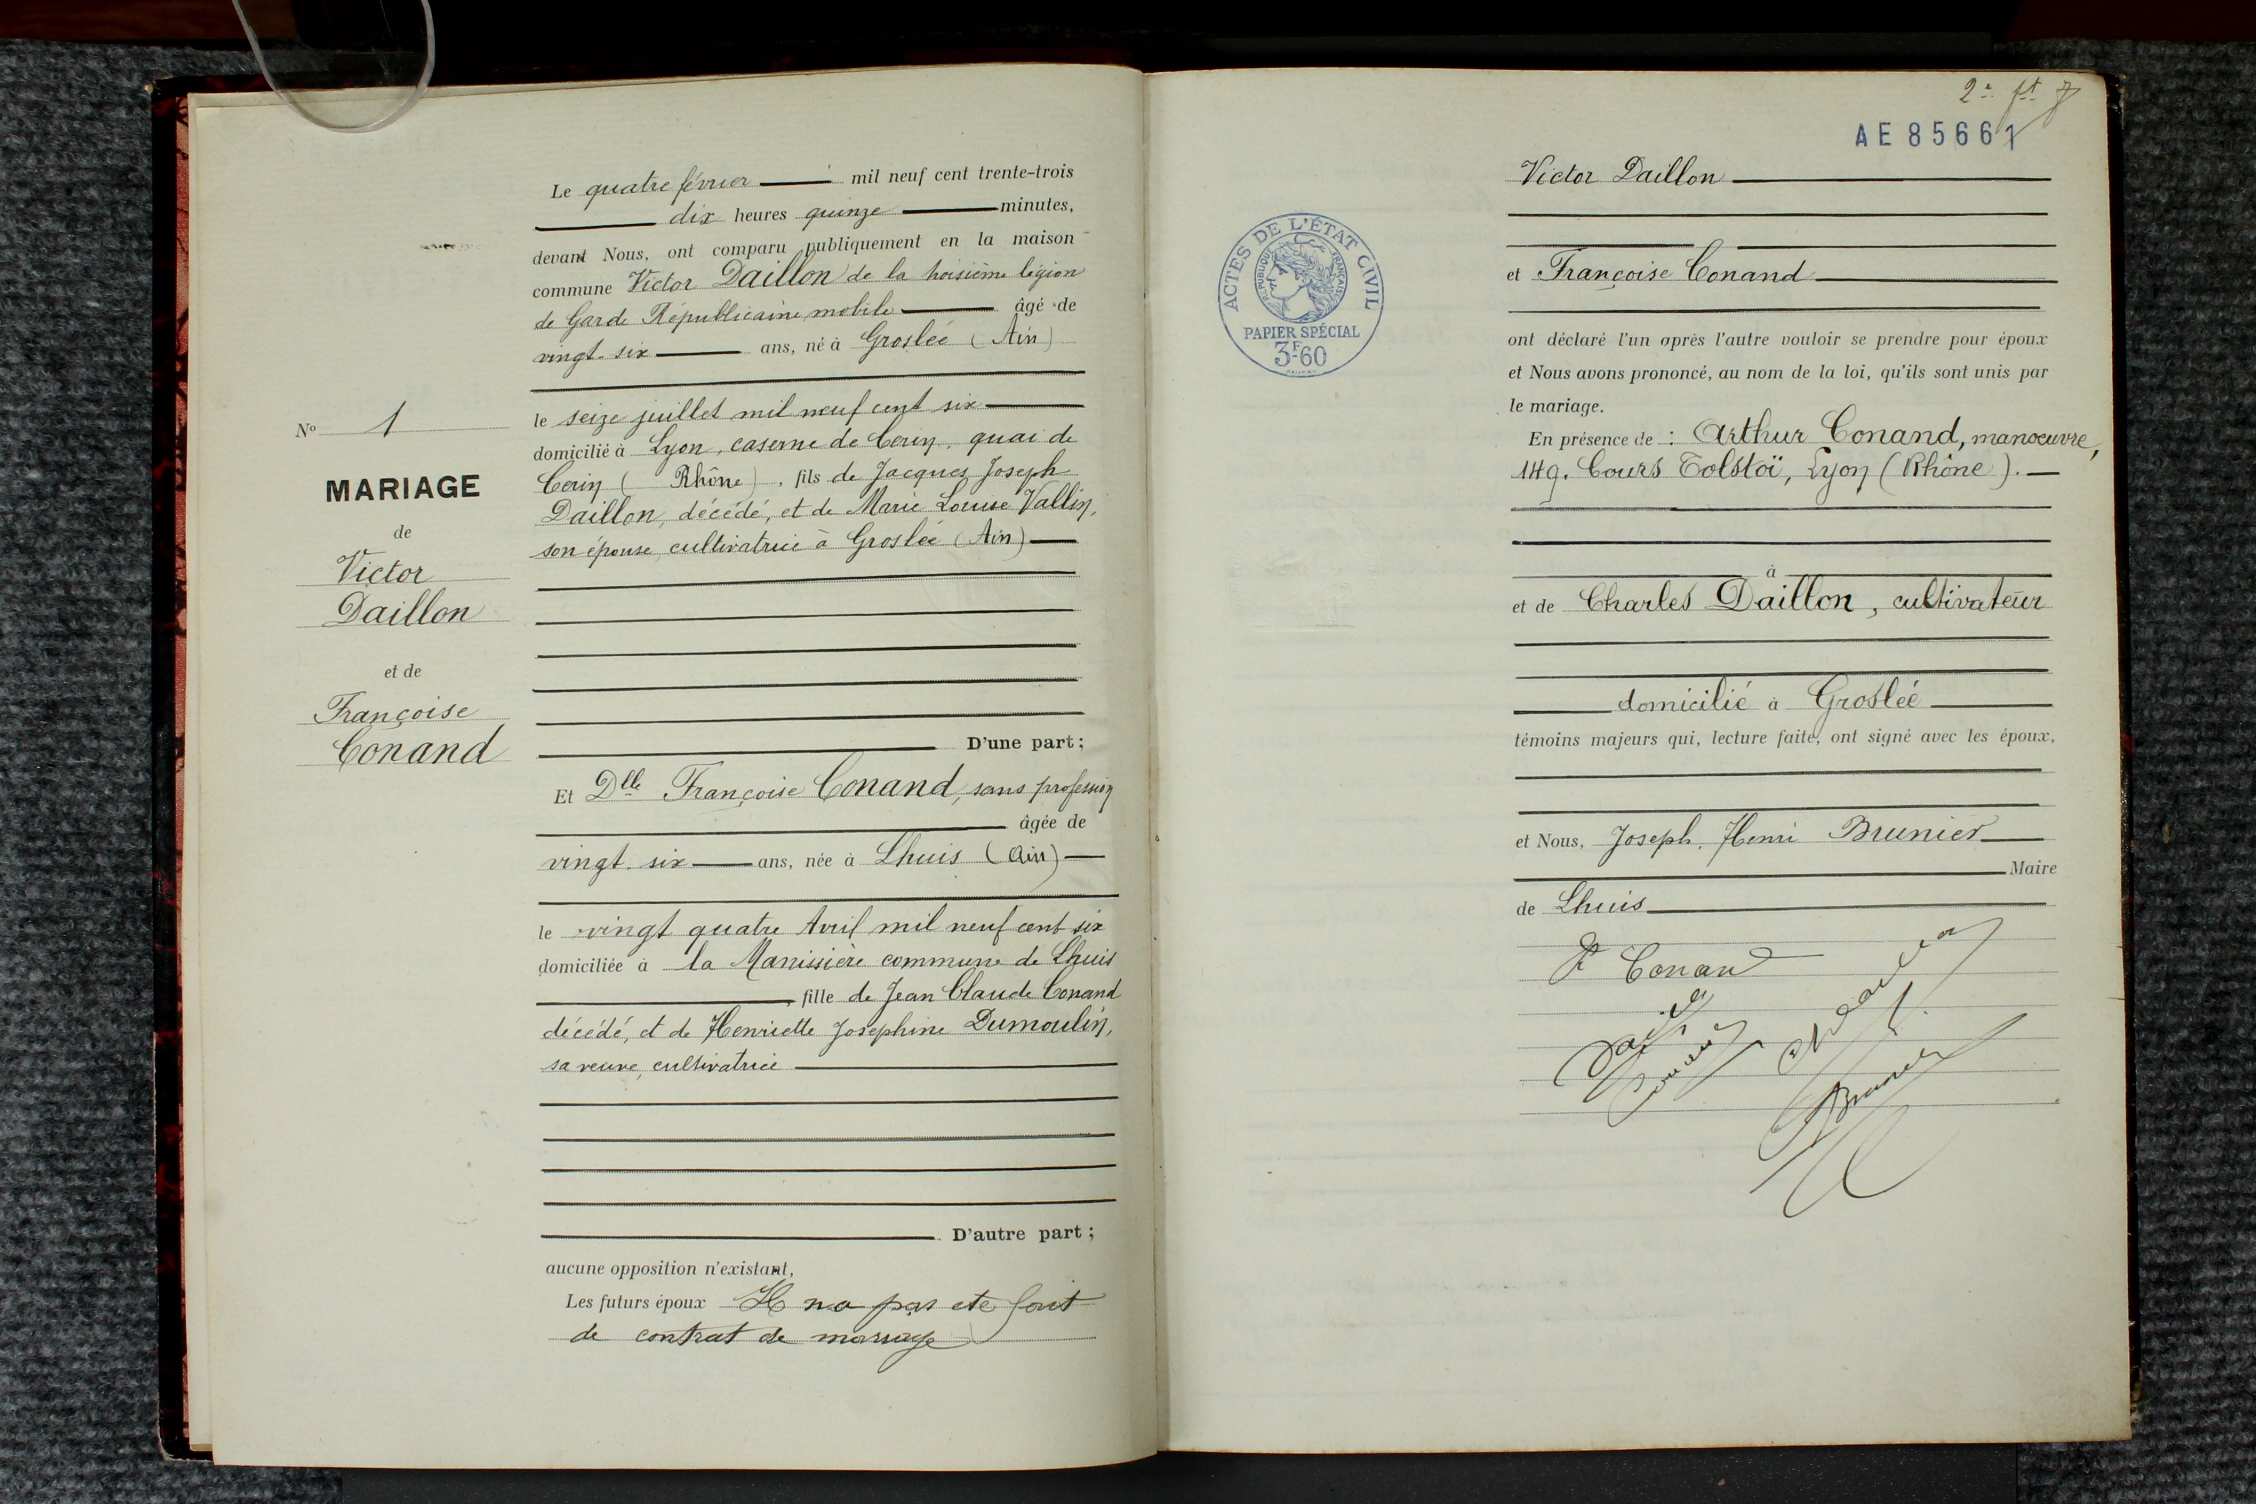 Le quatre février mil neuf cent trente-trois
dix heures quinze minutes,
devant Nous, ont comparu publiquement en la maison
commune Victor Daillon de la troisième légion
de Garde Républicaine mobile âgé de
vingt-six ans, né à Groslée (Ain)
le seize juillet mil neuf cent six
domicilié à Lyon, caserne de Cerin, quai de
Cerin (Rhône), fils de Jacques Joseph
Daillon, décédé, et de Marie Louise Vallin,
son épouse cultivatrice à Groslée (Ain)
D'une part;
Nº 1
MARIAGE
de
Victor
Daillon
et de
Françoise
Conand
Et Dlle Françoise Conand, sans profession
âgée de
vingt-six ans, née à Lhuis (Ain)
le vingt quatre Avril mil neuf cent six
domiciliée à la Manissière commune de Lhuis
, fille de Jean Claude Conand
décédé, et de Henriette Josephine Dumoulin,
sa veuve, cultivatrice
D'autre part;
aucune opposition n'existant,
Les futurs époux Il na pas ete fait
de contrat de mariage
2e ft
AE 85661
ACTES DE L'ÉTAT CIVIL
RÉPUBLIQUE FRANÇAISE
PAPIER SPÉCIAL
3F60
Victor Daillon
et Françoise Conand
ont déclaré l'un après l'autre vouloir se prendre pour époux
et Nous avons prononcé, au nom de la loi, qu'ils sont unis par
le mariage.
En présence de : Arthur Conand, manoeuvre,
149. Cours Tolstoï, Lyon (Rhône).
à
et de Charles Daillon, cultivateur
domicilié à Groslée
témoins majeurs qui, lecture faite, ont signé avec les époux,
et Nous, Joseph, Henri Brunier
Maire
de Lhuis
F Conand
Daillon
Conand
Ch Daillon
Brunier